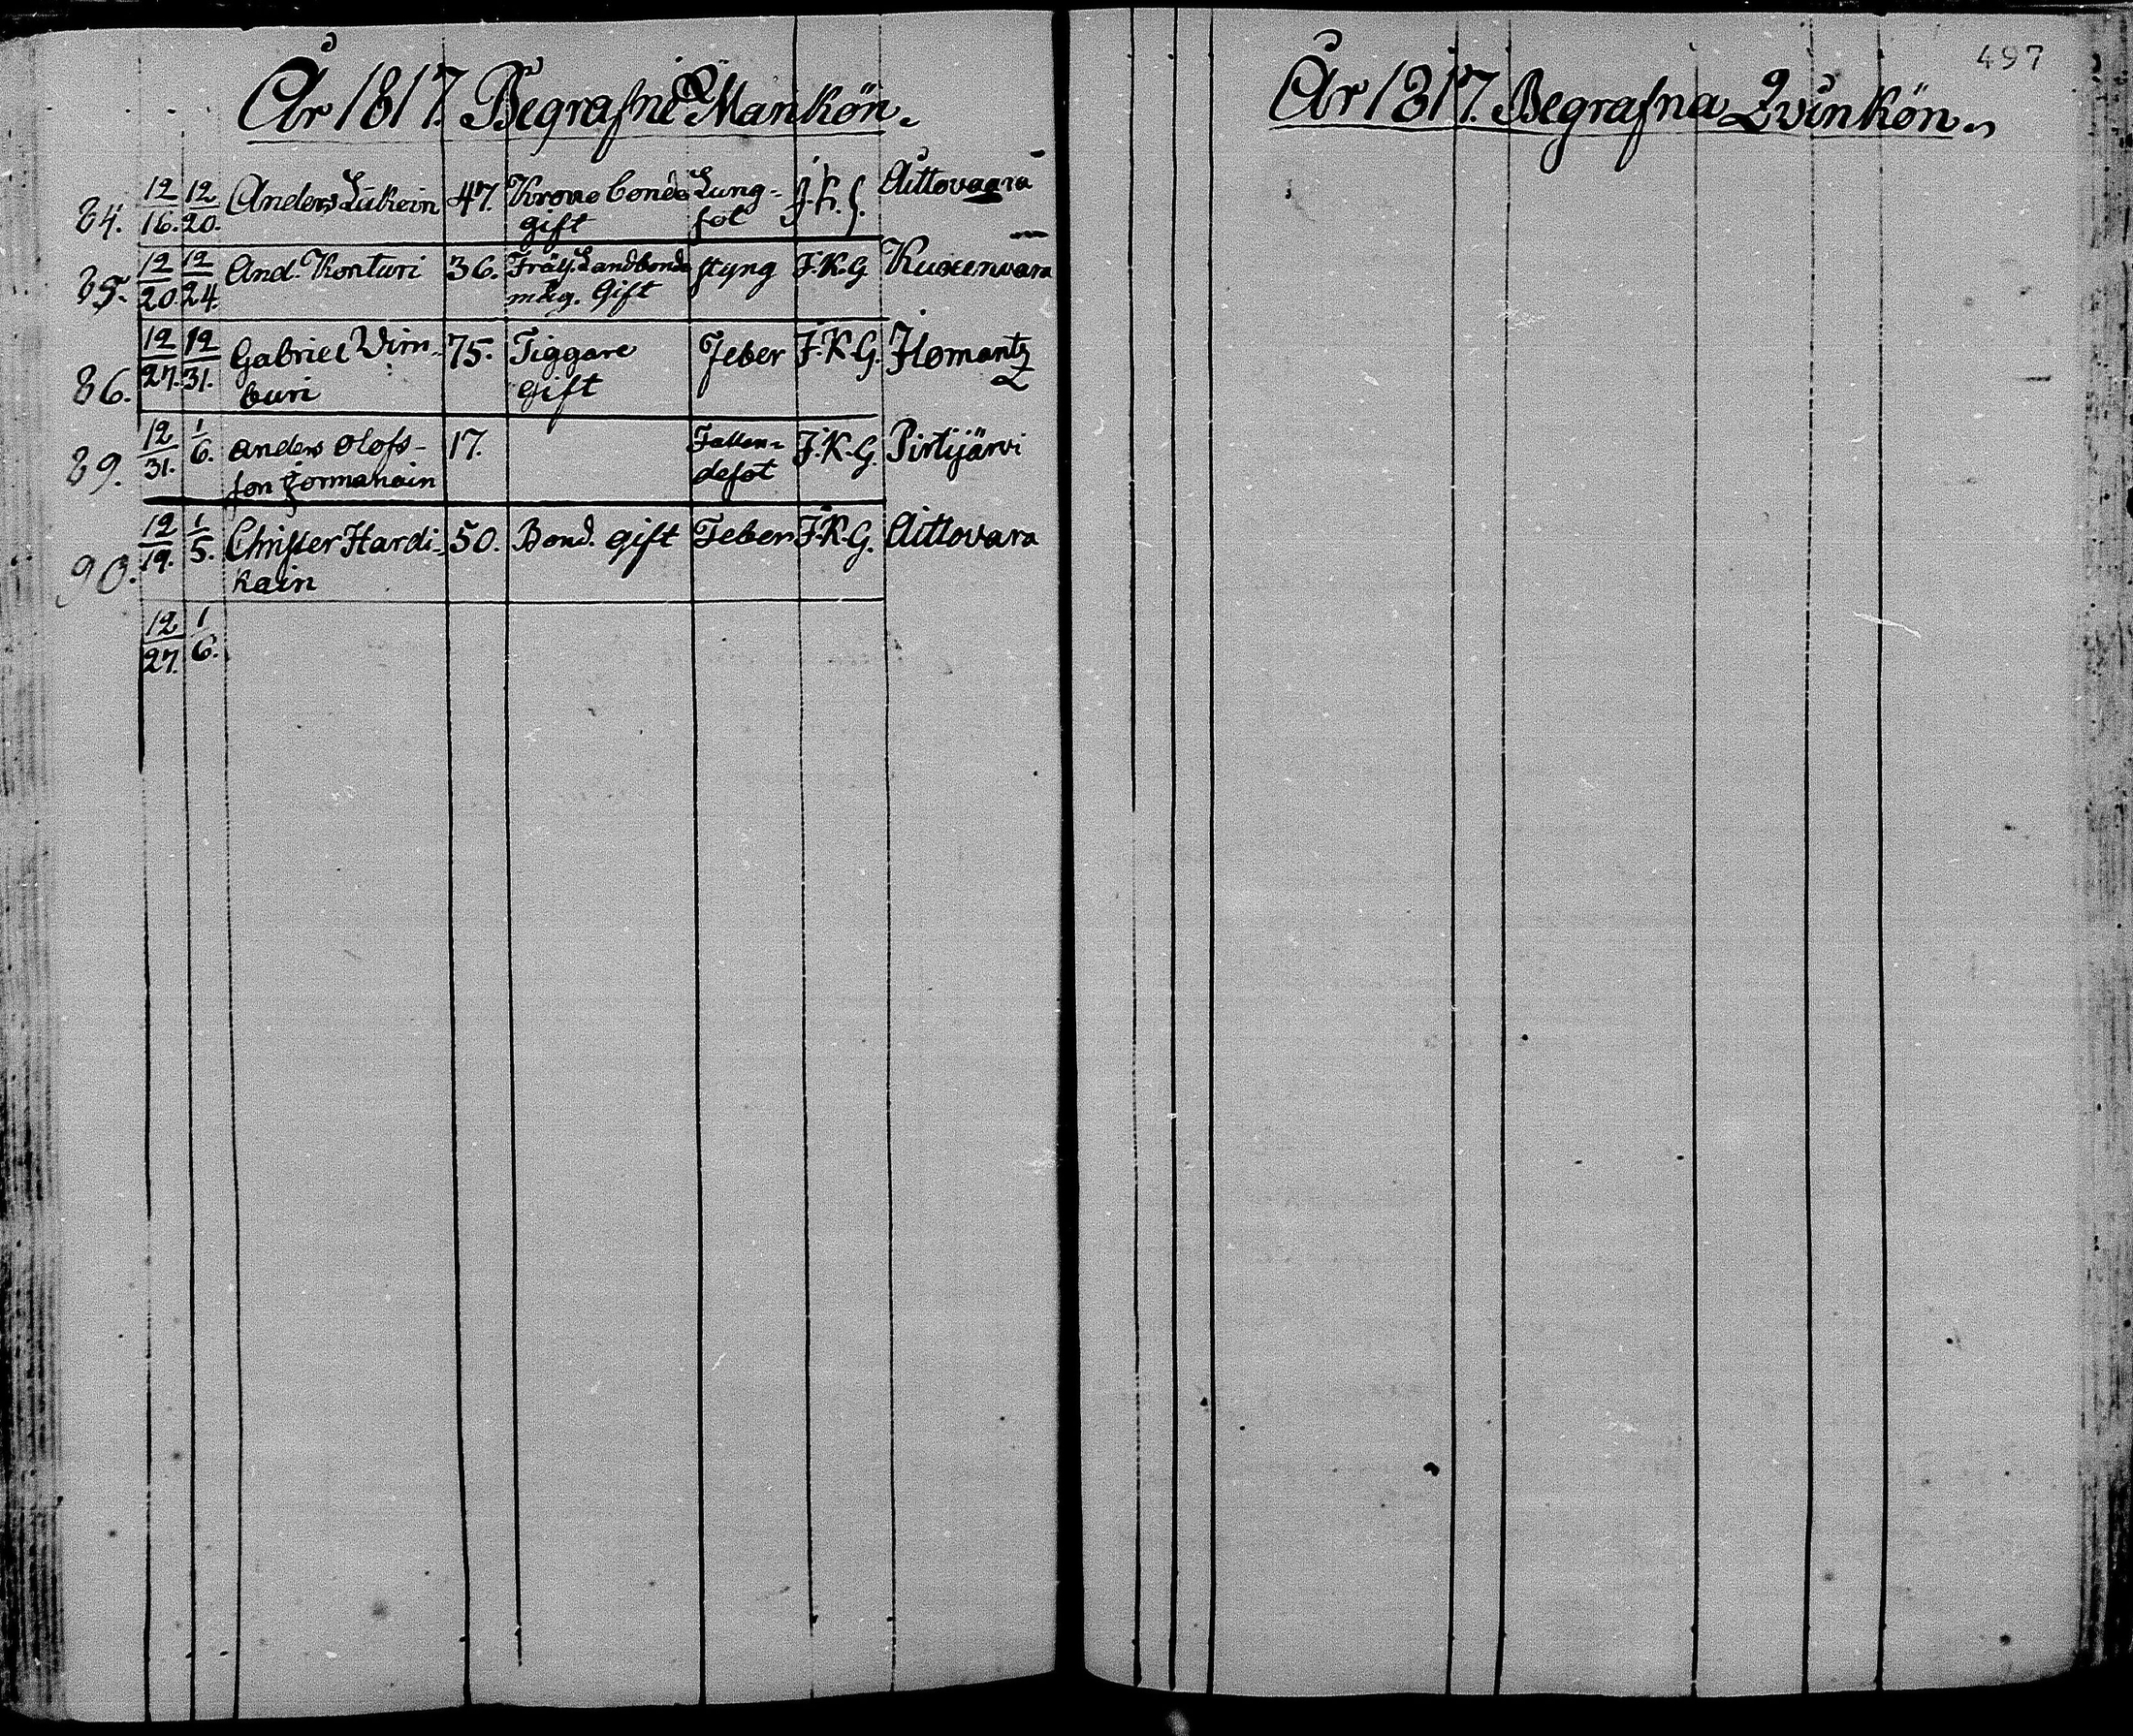 År 1817. Begrafne Mankön.
84. 12/16. 12/20. Anders Lukein 47. Krono bonde Lung- J.K.G. Aittovaara
gift sot
85. 12/20. 12/24. And. Konturi 36. Frälse Landbonde styng J.K.G Kuoxenvara
måg. Gift
86. 12/27. 12/31. Gabriel Wim- 75. Tiggare Feber J.K.G. Ilomantz
buri gift
89. 12/31. 1/6. Anders Olofs- 17. Fallan- J.K.G. Pirttijärvi
son Jormanain desot
90. 12/19. 1/5. Christer Hardi- 50. Bond. gift Feber J.K.G. Aittovara
kain
12/27. 1/6.
497
År 1817. Begrafna Qvinkön.